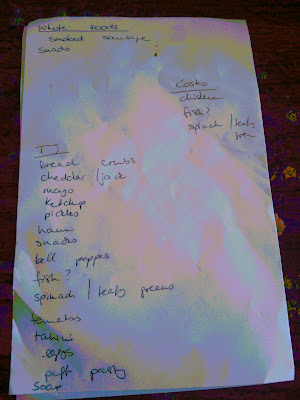 Whole Foods
smoked sausage
snacks
Costco
chicken
fish?
spinach / leafy
green
TJ
bread crumbs
cheddar / jack
mayo
ketchup
pickles
ham
snacks
bell pepper
fish?
spinach / leafy greens
tomatoes
tahini
eggs
puff pastry
soap